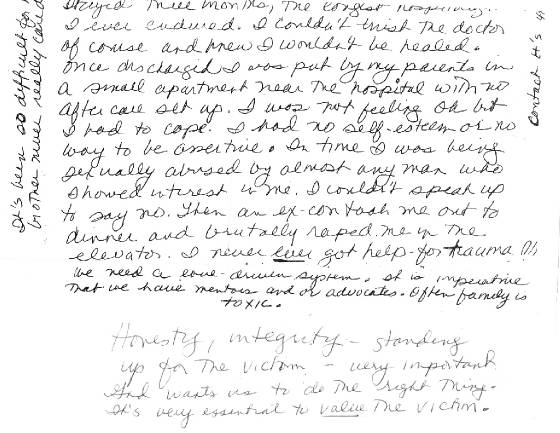 stayed three months, the longest
I ever endured. I couldn't trust the doctor
of course and knew I wouldn't be healed.
Once discharged I was put by my parents in
a small apartment near the hospital with no
after care set up. I was not feeling ok but
I had to cope. I had no self-esteem or no
way to be assertive. In time I was being
sexually abused by almost any man who
showed interest in me. I couldn't speak up
to say no. Then an ex-con took me out to
dinner and brutally raped me in the
elevator. I never ever got help for trauma
we need a driven system. It is imperative
that we have mentors and or advocates. Often family is
toxic.
Honesty, integrity - standing
up for the victim - very important
And wants us to do the right thing.
It's very essential to value the victim.
It's been so difficult
brother never really cared
Contact